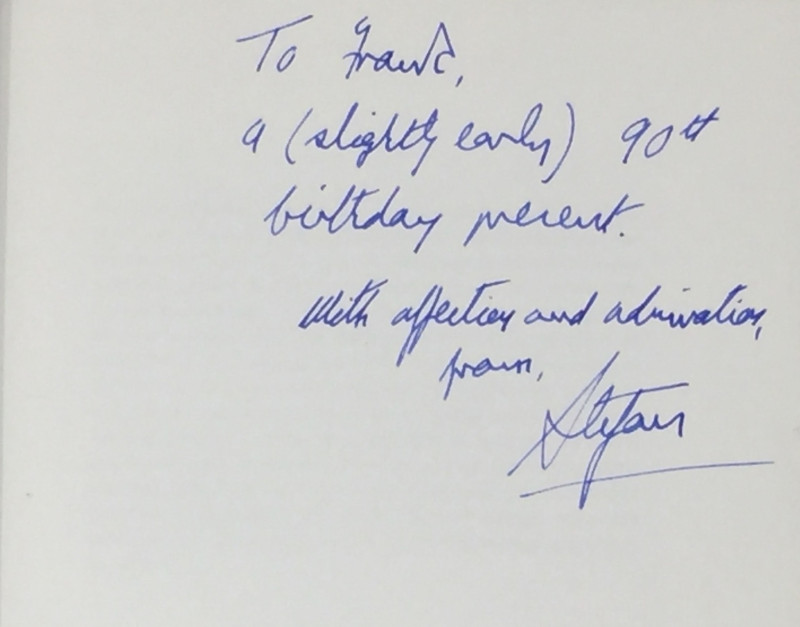 To Frank,
a (slightly early) 90th
birthday present.
With affection and admiration,
from,
Stefan